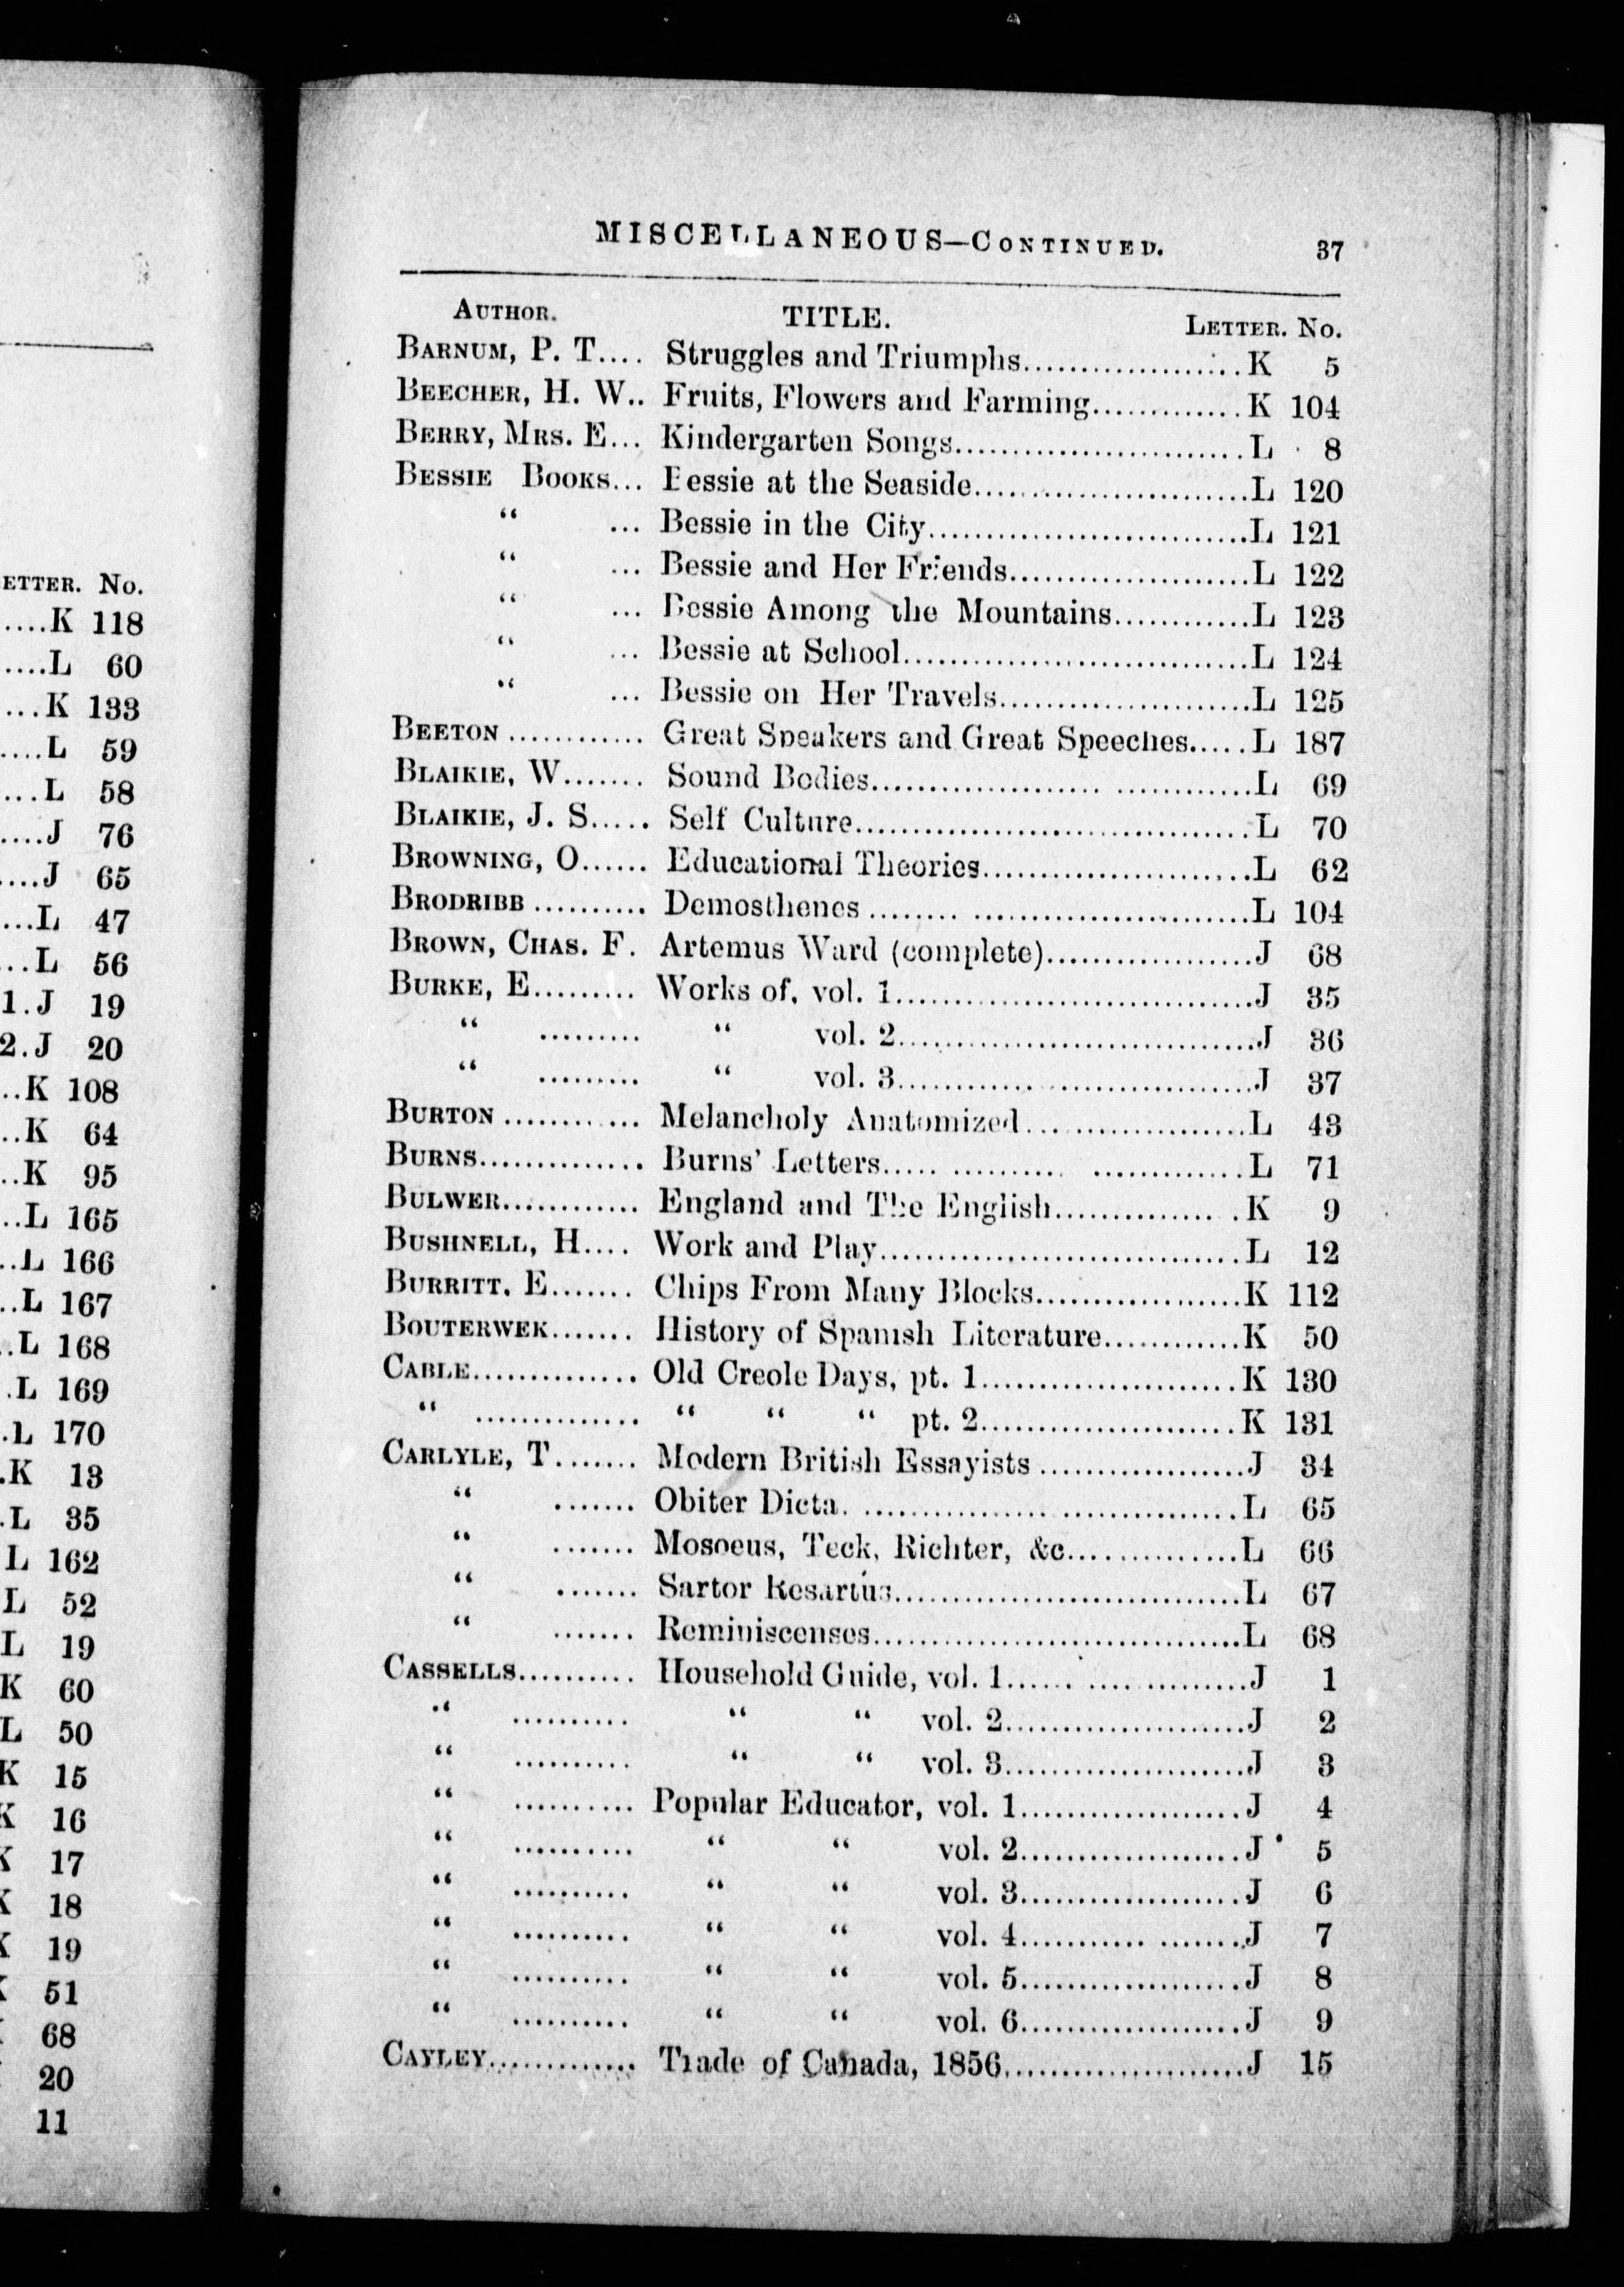 ETTER. No.
....K 118
.....L 60
...K 133
....L 59
...L 58
....J 76
....J 65
...L 47
...L 56
1.J 19
2.J 20
..K 108
..K 64
..K 95
..L 165
..L 166
..L 167
..L 168
.L 169
.L 170
.K 13
.L 35
L 162
L 52
L 19
K 60
L 50
K 15
K 16
K 17
K 18
K 19
51
68
20
11
MISCELLANEOUS—CONTINUED. 37
AUTHOR. TITLE. LETTER. No.
BARNUM, P. T.... Struggles and Triumphs....................K 5
BEECHER, H. W.. Fruits, Flowers and Farming.............K 104
BERRY, MRS. E... Kindergarten Songs.........................L 8
BESSIE BOOKS... Bessie at the Seaside........................L 120
“ ... Bessie in the City............................L 121
“ ... Bessie and Her Friends.....................L 122
“ ... Bessie Among the Mountains............L 123
“ ... Bessie at School..............................L 124
“ ... Bessie on Her Travels......................L 125
BEETON ............ Great Speakers and Great Speeches.....L 187
BLAIKIE, W....... Sound Bodies.................................L 69
BLAIKIE, J. S..... Self Culture..................................L 70
BROWNING, O...... Educational Theories........................L 62
BRODRIBB .......... Demosthenes .................................L 104
BROWN, CHAS. F. Artemus Ward (complete)..................J 68
BURKE, E......... Works of, vol. 1...............................J 35
“ ......... “ vol. 2...............................J 36
“ ......... “ vol. 3...............................J 37
BURTON ............ Melancholy Anatomized....................L 43
BURNS.............. Burns’ Letters...............................L 71
BULWER............ England and The English................K 9
BUSHNELL, H.... Work and Play...............................L 12
BURRITT. E....... Chips From Many Blocks..................K 112
BOUTERWEK....... History of Spanish Literature............K 50
CABLE.............. Old Creole Days, pt. 1......................K 130
“ .............. “ “ “ pt. 2......................K 131
CARLYLE, T....... Modern British Essayists ..................J 34
“ ....... Obiter Dicta. .................................L 65
“ ....... Mosoeus, Teck, Richter, &c...............L 66
“ ....... Sartor Resartus..............................L 67
“ ....... Reminiscenses................................L 68
CASSELLS.......... Household Guide, vol. 1.....................J 1
“ .......... “ “ vol. 2.....................J 2
“ .......... “ “ vol. 3.....................J 3
“ .......... Popular Educator, vol. 1...................J 4
“ .......... “ “ vol. 2...................J 5
“ .......... “ “ vol. 3...................J 6
“ .......... “ “ vol. 4...................J 7
“ .......... “ “ vol. 5...................J 8
“ .......... “ “ vol. 6...................J 9
CAYLEY............. Trade of Canada, 1856.....................J 15